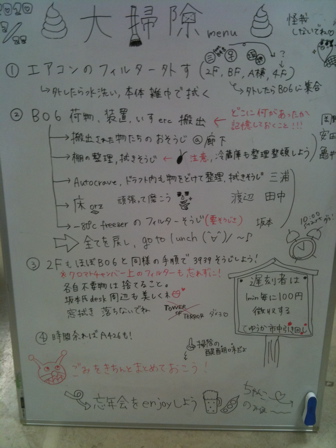 大掃除 menu
怪我しないでね
① エアコンのフィルター外す (2F, BF, A棟, 4F)
→外したら水洗い, 本体 雑巾で拭く
→外したらB06に集合
② B06 荷物, 装置, いす etc 搬出 ← どこに何があったか
記憶しておくこと!!!
→搬出された物たちのおそうじ @廊下
→棚の整理, 拭きそうじ ← 注意, 冷蔵庫も整理整頓しよう
→Autoclave, ドラフト内も物をどけて整理, 拭きそうじ 三浦
→床 orz 頑張って磨こう 渡辺 田中
→-80℃ freezer のフィルターそうじ 坂本
⇒ 全てを戻し, go to lunch
12:00
③ 2FもほぼB06と同様の手順で そうじしよう!
※クロマトチャンバー上のフィルターも忘れずに!
各自不要物は捨てること。
坂本氏desk周辺も美しく
窓拭き 落ちないでね
遅刻者は
1min毎に100円
徴収する
④ 時間余ればA426も!
ごみをきちんとまとめておこう!
忘年会をenjoyしよう